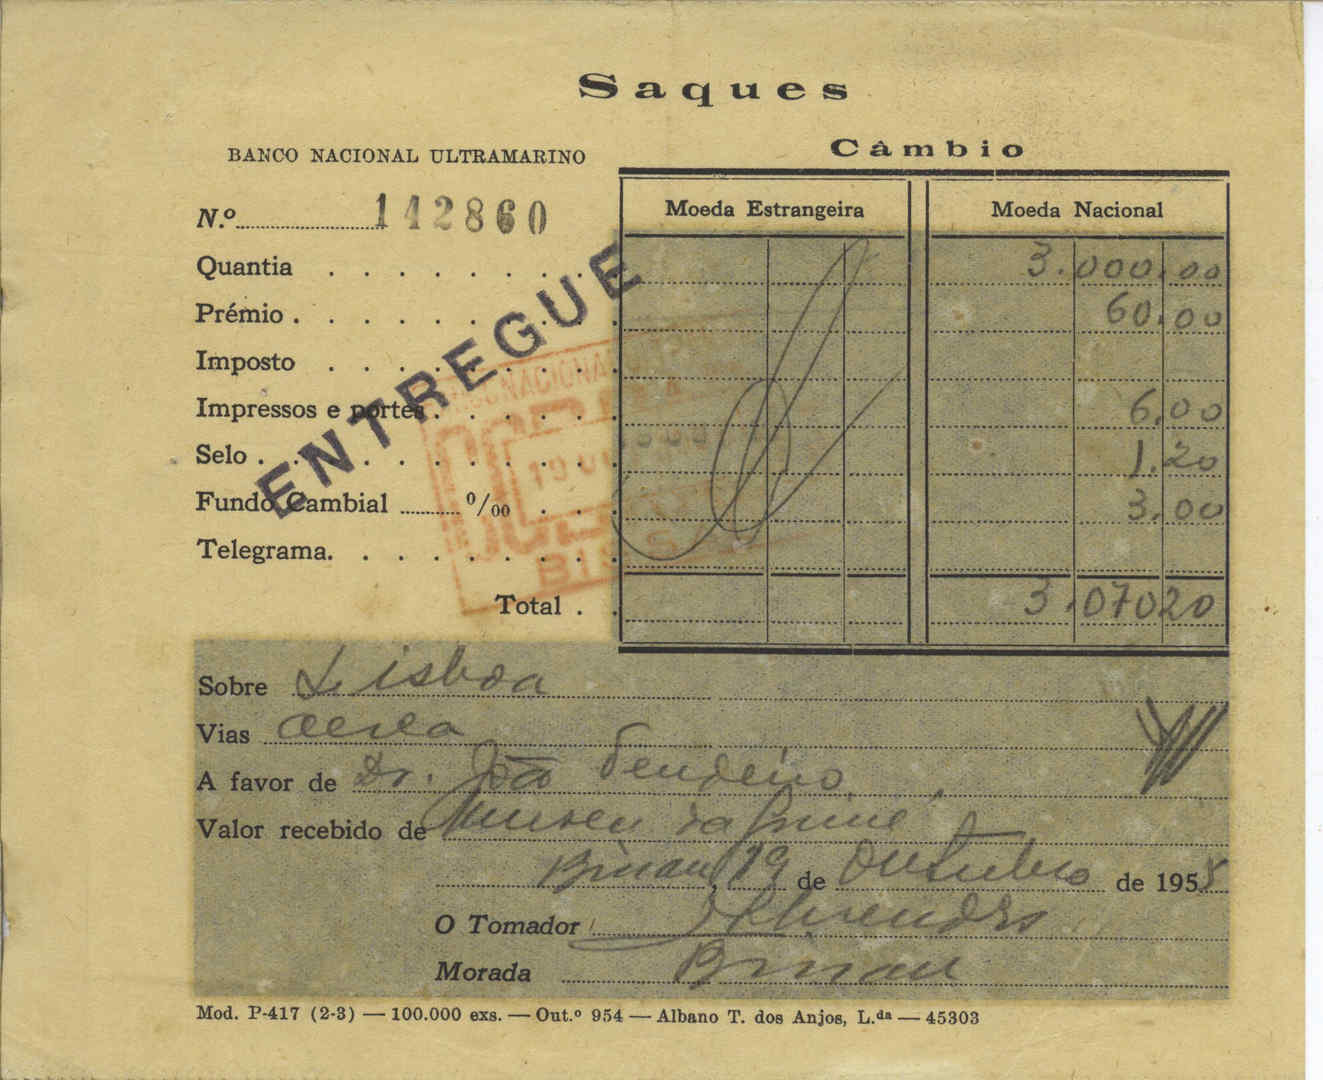 Saques
Câmbio
BANCO NACIONAL ULTRAMARINO
Moeda Estrangeira Moeda Nacional
N.º 142860
Quantia 3.000.00
Prémio 60.00
Imposto
Impressos e portes 6.00
Selo 1.20
Fundo Cambial º/ºº 3.00
Telegrama
Total 3.07020
ENTREGUE
NACIONAL
19
BIS
Sobre Lisboa
Vias aerea
A favor de Dr. João Tendeiro
Valor recebido de Museu da Guiné
Bissau, 19 de Outubro de 1955
O Tomador
Morada Bissau
Mod. P-417 (2-3) — 100.000 exs. — Out.º 954 — Albano T. dos Anjos, L.da — 45303